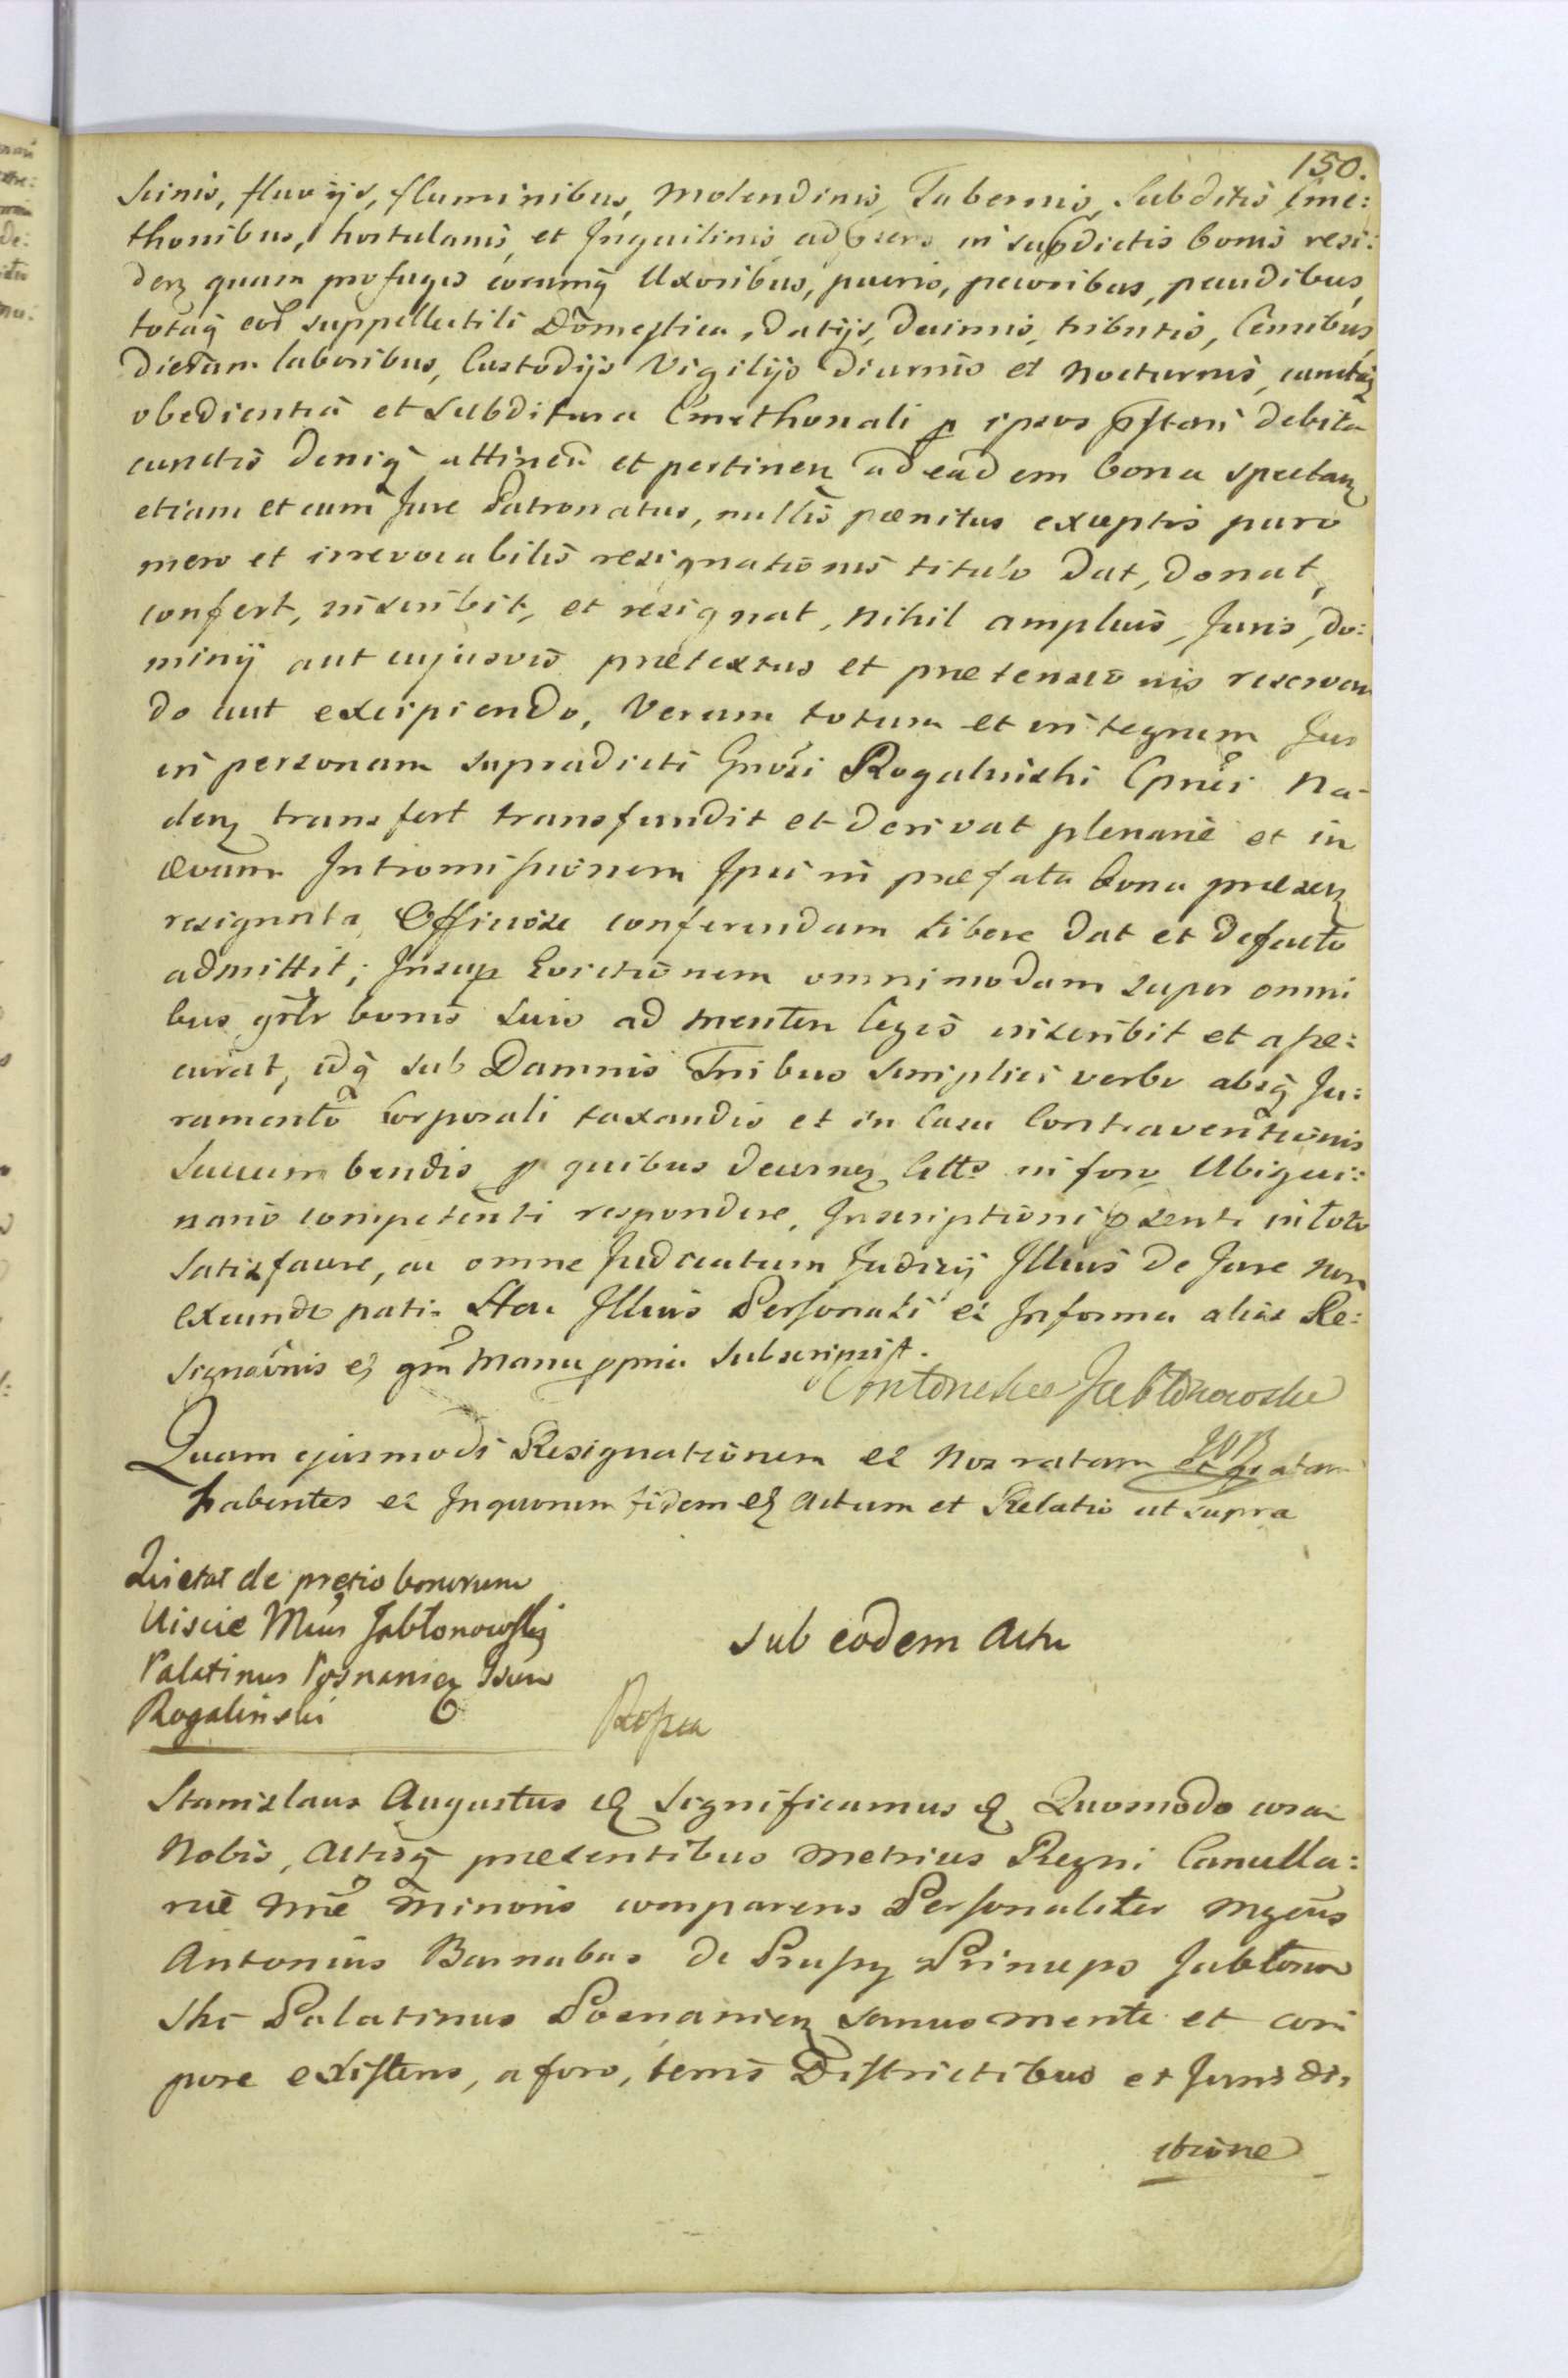 150.
scinis, fluvijs, fluminibus, Molendinis, Tabernis, Subditis Cme:
thonibus, hortulanis, et Inquilinis ad præns in supdictis bonis resi:
den quam profugis eorumq̃ Uxoribus, pueris, pecoribus, pecudibus,
totaq̃ eor̃ suppellectili Domestica, Datijs, Decimis, tributis, Censibus
Dietam laboribus, Custodijs Vigilijs Diurnis et Nocturnis, cunctaq̃
obedientia et Subditura Cmethonali p ipsos p̃stari debita
cunctis deniq̃ attinen̄ et pertinen ad eadem bona spectan
etiam et cum Jure Patronatus, nullis pænitus exceptis puro
mero et irrevocabilis resignationis titulo Dat, Donat,
confert, inscribit, et resignat, Nihil amplius, Juris, do:
minij aut cujusvis prætextus et prætensionis reserven
do aut excipiendo, Verum totum et integrum Jus
in personam supradicti Gnõsi Rogalinski Cpnẽi Na-
den transfert transfundit et derivat plenarie et in
ævum Intromissionem Ipsi in præfata bona præsen
resignata Officiose conferendam libere Dat et Defacto
admittit; Insup Evictionem omnimodam super omni
bus gñlr bonis suis ad mentem legis inscribit et asse:
curat, idq̃ sub Damnis Tribus simplici verbo absq̃ Ju:
ramento Corporali taxandis et in Casu Contraventionis
Succumbendis p quibus decernen Cttõ in foro Ubiqui:
nario competenti respondere, Inscriptioni p̃senti in toto
satisfacere, ac omne Judicatum Judicij Illius de Jure Non
exeundo pati. Stan Illius Personali et In forma alias Re:
signaõnis et gm̃ Manu ppria subscripsit.
Antoni Jabłonowski
Quam ejusmodi Resignationem et Nos ratam et gratam
habentes et Inquorum fidem et Actum et Relatio ut supra
Quietat de pretio bonorum
Uiscie Mcus Jabłonowski
Palatinus Posnanien Gsum
Rogalinski
Sub eodem Actu
Stanislaus Augustus et Significamus et Quomodo coram
Nobis, Actisq̃ præsentibus Metrices Regni Cancella:
riæ Nræ Minoris comparens Personaliter Mgcus
Antonius Barnabas de Prussy Princeps Jabłonow
ski Palatinus Posnanien Sanus mente et cor
pore existens, a foro, terris Districtibus et Jurisdi,
ctione